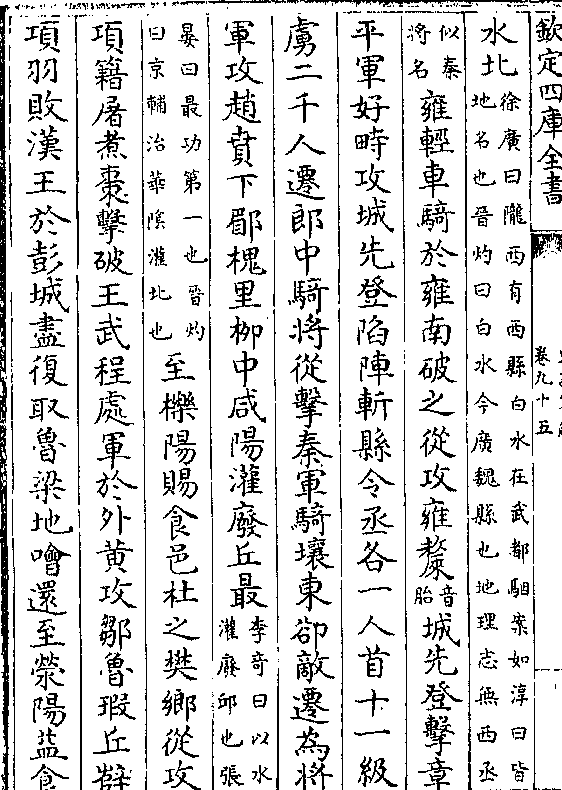 欽定四庫全書
卷九十五
水北徐廣曰隴西有西縣白水在武都駰案如淳曰皆地名也晉灼曰白水今廣魏縣也地理志無西丞
似秦將名雍輕車騎於雍南破之從攻雍斄音胎城先登擊章
平軍好畤攻城先登陷陣斬縣令丞各一人首十一級
虜二千人遷郎中騎將從擊秦軍騎壤東卻敵遷為將
軍攻趙賁下郿槐里柳中咸陽灌廢丘最李奇曰以水灌廢邱也張
晏曰最功第一也晉灼曰京輔治華隂灌北也至櫟陽賜食邑杜之樊鄉從攻
項籍屠煮棗擊破王武程處軍於外黄攻鄒魯瑕丘薛
項羽敗漢王於彭城盡復取魯梁地噲還至滎陽益食